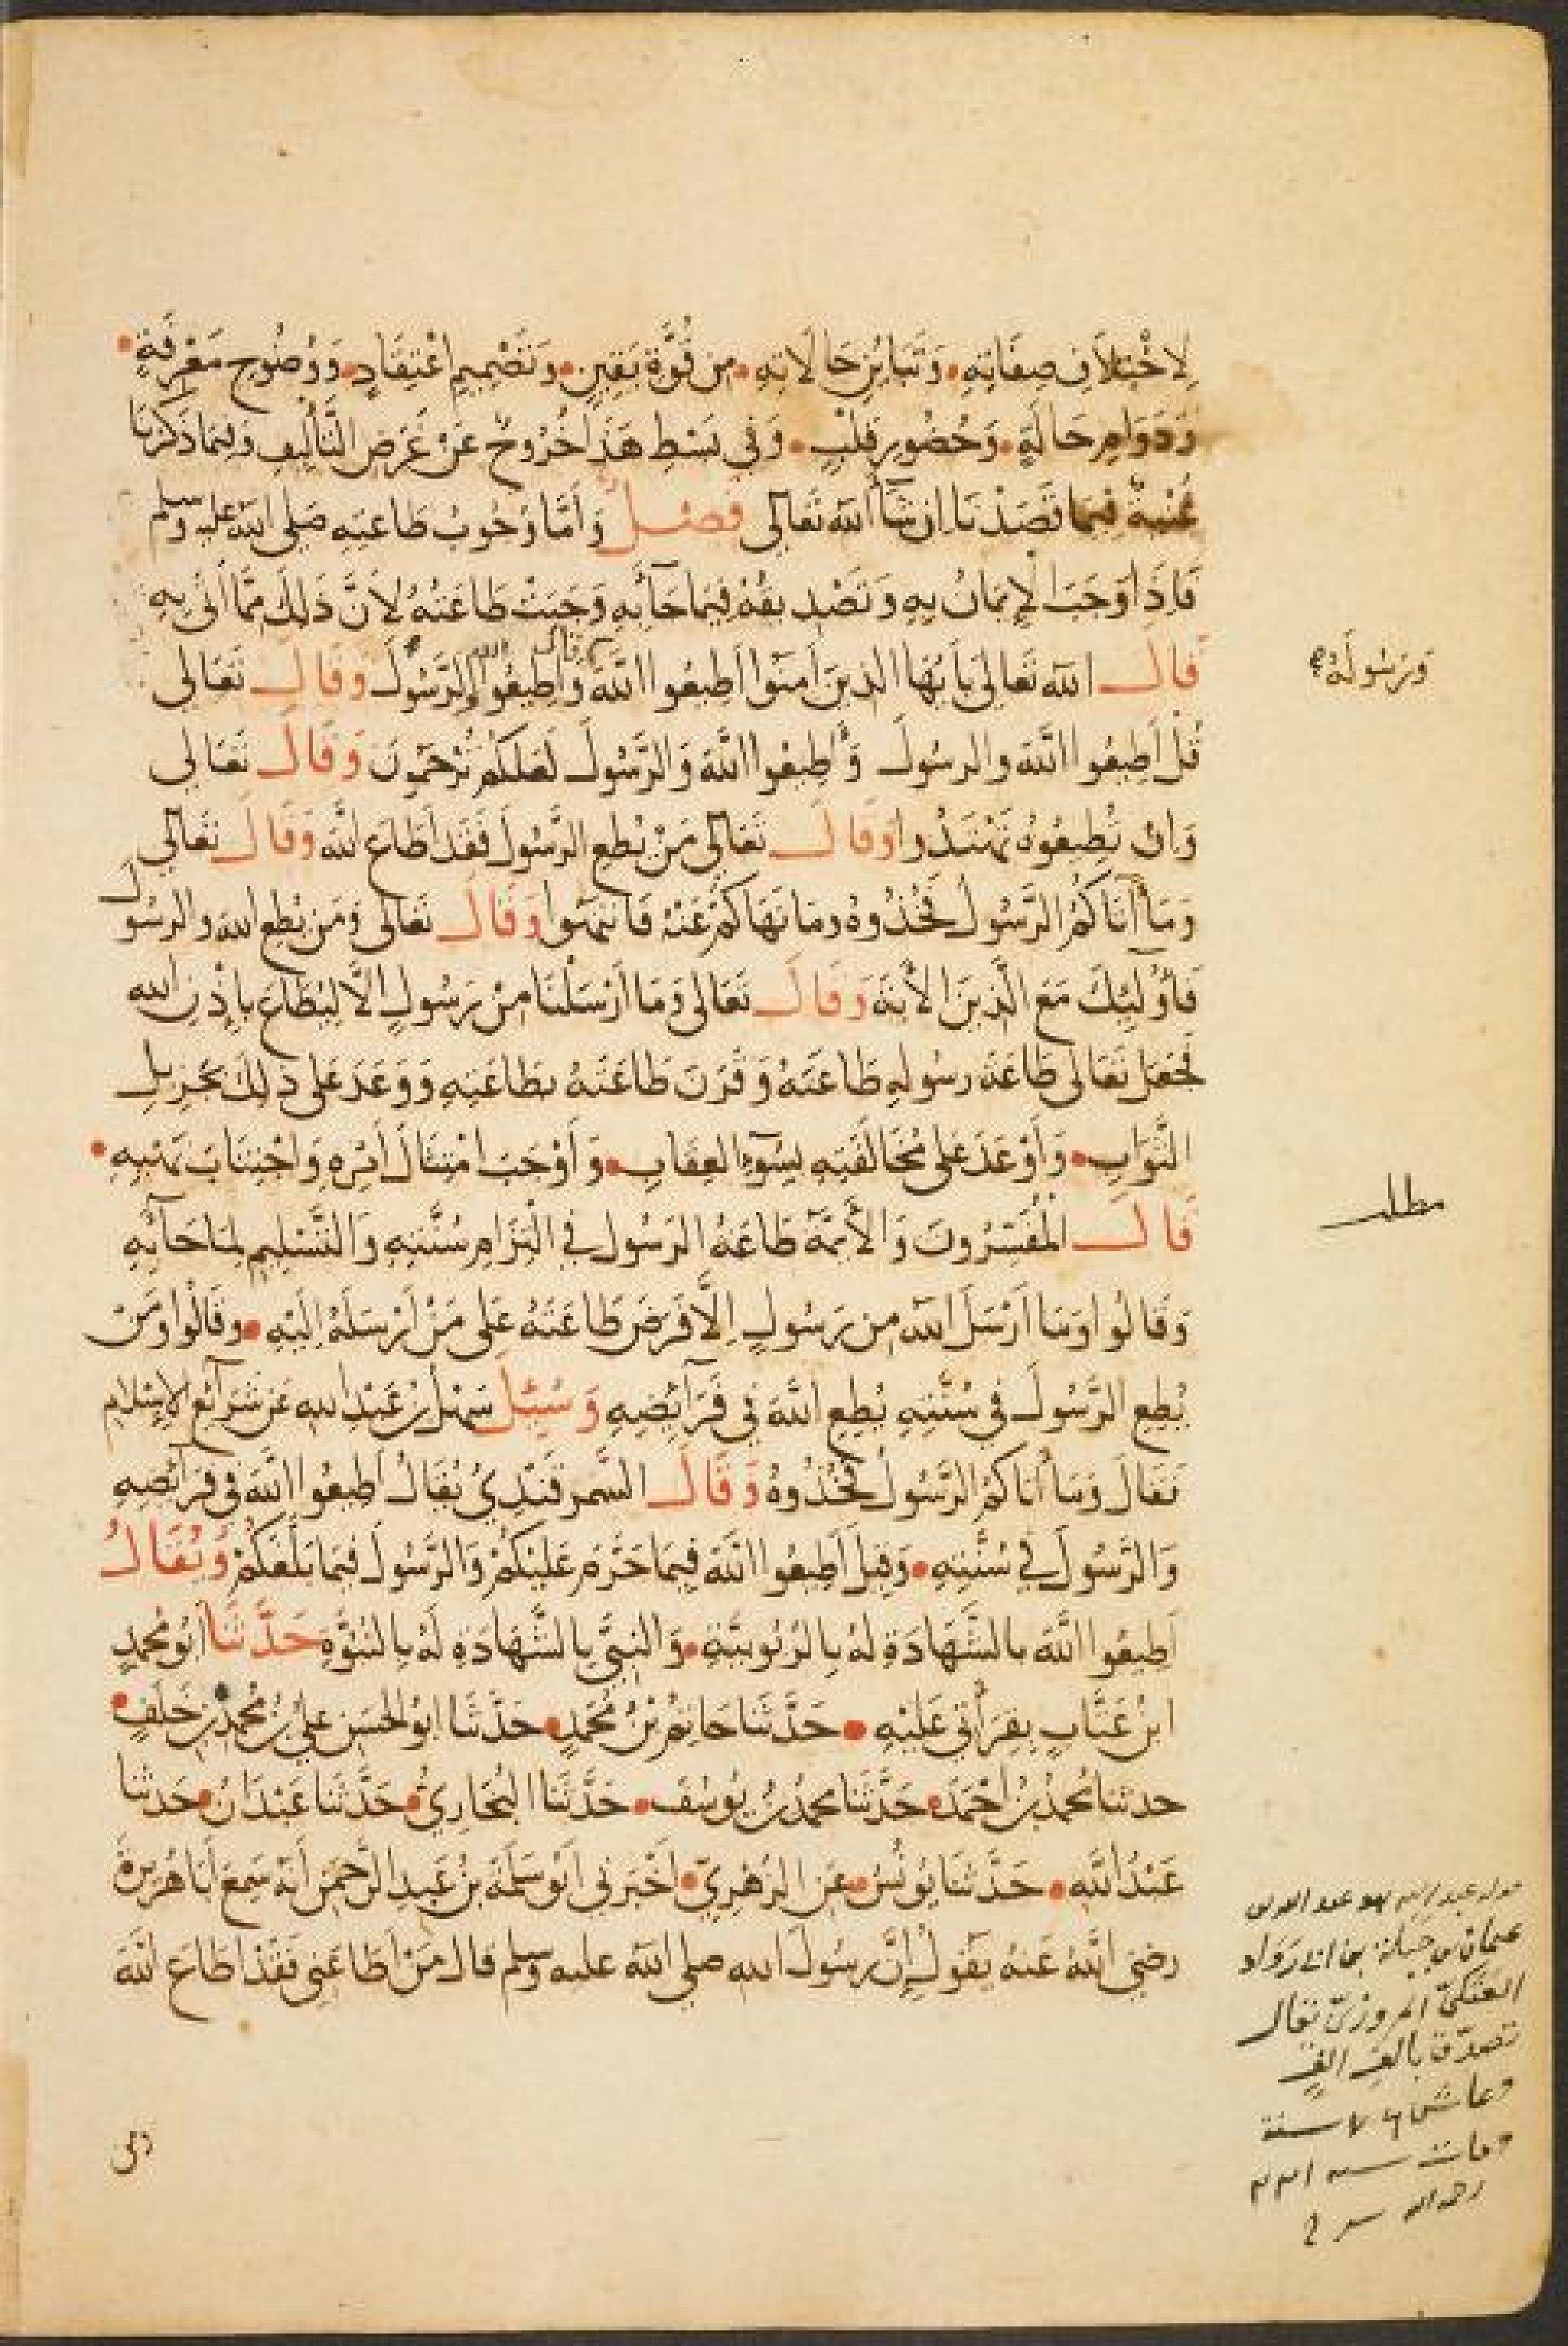 لِاخْتِلَافِ صِفَاتِهِ وَتَبَايُنِ حَالَاتِهِ مِن قُوَّةِ يَقِينٍ وَتَصْمِيمِ اعْتِقَادٍ وَوُضُوحِ مَعْرِفَةٍ
وَدَوَامِ حَالَةٍ وَحُضُورِ قَلْبٍ وَفِي بَسْطِ هَذَا خُرُوجٌ عَنْ غَرَضِ التَّأْلِيفِ وَفِيمَا ذَكَرْنَا
غُنْيَةٌ فِيمَا قَصَدْنَا إِنْ شَاءَ اللَّه تَعَالَى فصل وَأَمَّا وُجُوبُ طَاعَتِهِ صَلَّى اللَّه عليه وسلم
فَإِذَا وَجَبَ الْإِيمَانُ بِهِ وَتَصْدِيقُهُ فِيمَا جَاءَ بِهِ وَجَبَتْ طَاعَتُهُ لِأَنَّ ذَلِكَ مِمَّا أَتَى بِهِ
قَالَ الله تَعَالَى يَا أَيُّهَا الذينَ آمَنُوا أَطِيعُوا اللَّهَ وَأَطِيعُوا الرَّسُولَ وَقَالَ تَعَالَى
وَرَسُولَهُ
قُلْ أَطِيعُوا اللَّهَ والرسُولَ وَأَطِيعُوا اللَّهَ وَالرَّسُولَ لَعَلَّكُمْ تُرْحَمُونَ وَقَالَ تَعَالَى
وَإِن تُطِيعُوهُ تَهْتَدُوا وَقَالَ تَعَالَى مَنْ يُطِعِ الرَّسُولَ فَقَدْ أَطَاعَ اللَّه وَقَالَ تَعَالَى
وَمَا آتَاكُمُ الرَّسُولُ فَخُذُوهُ وما نَهَاكُمْ عَنْهُ فَانْتَهُوا وَقَالَ تَعَالَى وَمَن يُطِعِ الله والرسُول
فَأُولَئِكَ مَعَ الَّذِينَ الْآيَةَ وَقَالَ تَعَالَى وَمَا أَرْسَلْنَا مِنْ رَسُولٍ إِلَّا لِيُطَاعَ بِإِذْنِ الله
فَجَعَلَ تَعَالَى طَاعَةَ رسُولِهِ طَاعَتَهُ وَقَرَنَ طَاعَتَهُ بطَاعَتِهِ وَوَعَدَ عَلَى ذَلِكَ بِجَزِيلِ
الثَّوَابِ وَأَوْعَدَ عَلَى مُخَالَفَتِهِ بِسُوءِ العِقَابِ وَأَوْجَبَ امْتِثَالَ أَمْرِهِ وَاجْتِنَابَ نَهْيِهِ
قَالَ الْمُفَسِّرُونَ وَالْأَئِمَّةُ طَاعَةُ الرَسُولِ فِي الْتِزَامِ سُنَّتِهِ وَالتَّسْلِيمِ لِمَا جَاءَ بِهِ
مطلب
وَقَالُوا وَمَا أَرْسَلَ اللَّه مِن رَسُولٍ إِلَّا فَرَضَ طَاعَتَهُ عَلَى مَنْ أَرْسَلَهُ إِلَيْهِ وقَالُوا وَمَنْ
يُطِعِ الرَّسُولَ فِي سُنَّتِهِ يُطِعِ اللَّهَ فِي فَرَائِضِهِ وَسُئِلَ سَهْلُ بْنُ عَبْدِ الله عَنْ شَرَائِعِ الْإِسْلَامِ
فَقَالَ وَمَا آتَاكُمُ الرَّسُولُ فَخُذُوهُ وَقَالَ السَّمرقَنْدِيُّ يُقَالُ أَطِيعُوا اللَّهَ فِي فَرَائِضِهِ
وَالرَّسُولَ فِي سُنَّتِهِ وَقِيلَ أَطِيعُوا اللَّهَ فِيمَا حَرَّمَ عَلَيْكُمْ وَالرَّسُولَ فِيمَا بَلَّغَكُمْ وَيُقَالُ
أَطِيعُوا اللَّهَ بِالشَّهَادَةِ لَهُ بِالرُّبُوبِيَّةِ وَالنَّبِيَّ بِالشَّهَادَةِ لَهُ بِالنُّبُوَّةِ حَدَّثَنَا أَبُو مُحَمدِ
ابْنُ عَتَّابٍ بِقِرَأتِي عَلَيْهِ حَدَّثَنَا حَاتِمُ بْنُ مُحَمَّدٍ حَدَّثَنَا أبُو الْحَسَنِ عَلِيُّ بْنُ مُحَمَّدِ بْنِ خَلَفٍ
حدثنا مُحمدُ بْنُ أَحْمَدَ حَدَّثَنَا محمدُ بْنُ يُوسُفَ حَدَّثَنَا الْبُخَارِيُّ حَدَّثَنَا عَبْدَانُ حَدثنا
عَبْدُ اللَّهِ حَدَّثَنَا يُونُسُ عَنِ الزُهْرِيِّ أَخْبَرَنِي أَبُو سَلَمَةَ بْنُ عَبْدِ الرَّحْمَنِ أَنَّهُ سَمِعَ أَبَا هُرَيْرَةَ
رضِيَ اللَّهُ عَنْهُ يَقُولُ إِنَّ رسُولَ الله صلى اللَّهُ عليه وسلم قَالَ مَنْ أَطَاعَنِي فَقَدْ أَطَاعَ اللَّهَ
عثمان بن جبلة بن ابي رواد
العتكي المروزي يقال
تصدق بالف الف
وعاش ٧٦ سنة
ومات سنة ٢٢١